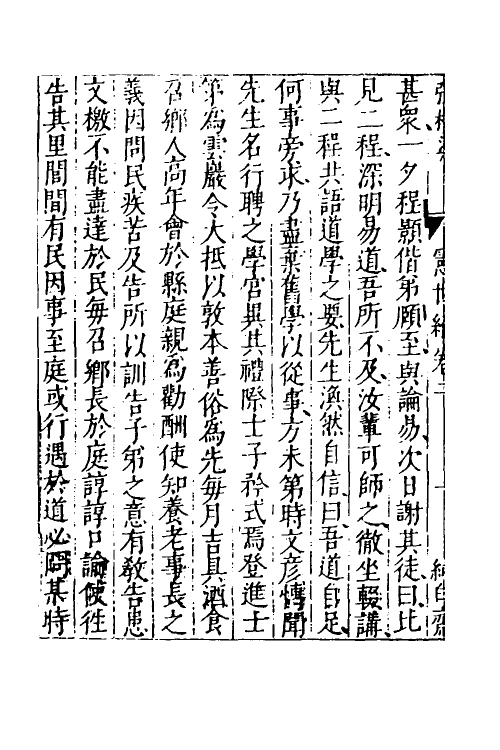 甚衆一夕程顥偕弟頤至與論易次日謝其徒曰比
見二程深明易道吾所不及汝輩可師之徹坐輟講
與二程共語道學之要先生渙然自信曰吾道自足
何事旁求乃盡棄舊學以從事方未第時文彦愽聞
先生名行聘之學官異其禮際士子矜式焉登進士
第為雲巖令大抵以敦本善俗為先每月吉具酒食
召鄉人高年會於縣庭親為勸酬使知養老事長之
義因問民疾苦及告所以訓告子弟之意有敎告患
文檄不能盡達於民每召鄉長於庭諄諄口諭使徃
告其里閭間有民因事至庭或行遇於道必問某時